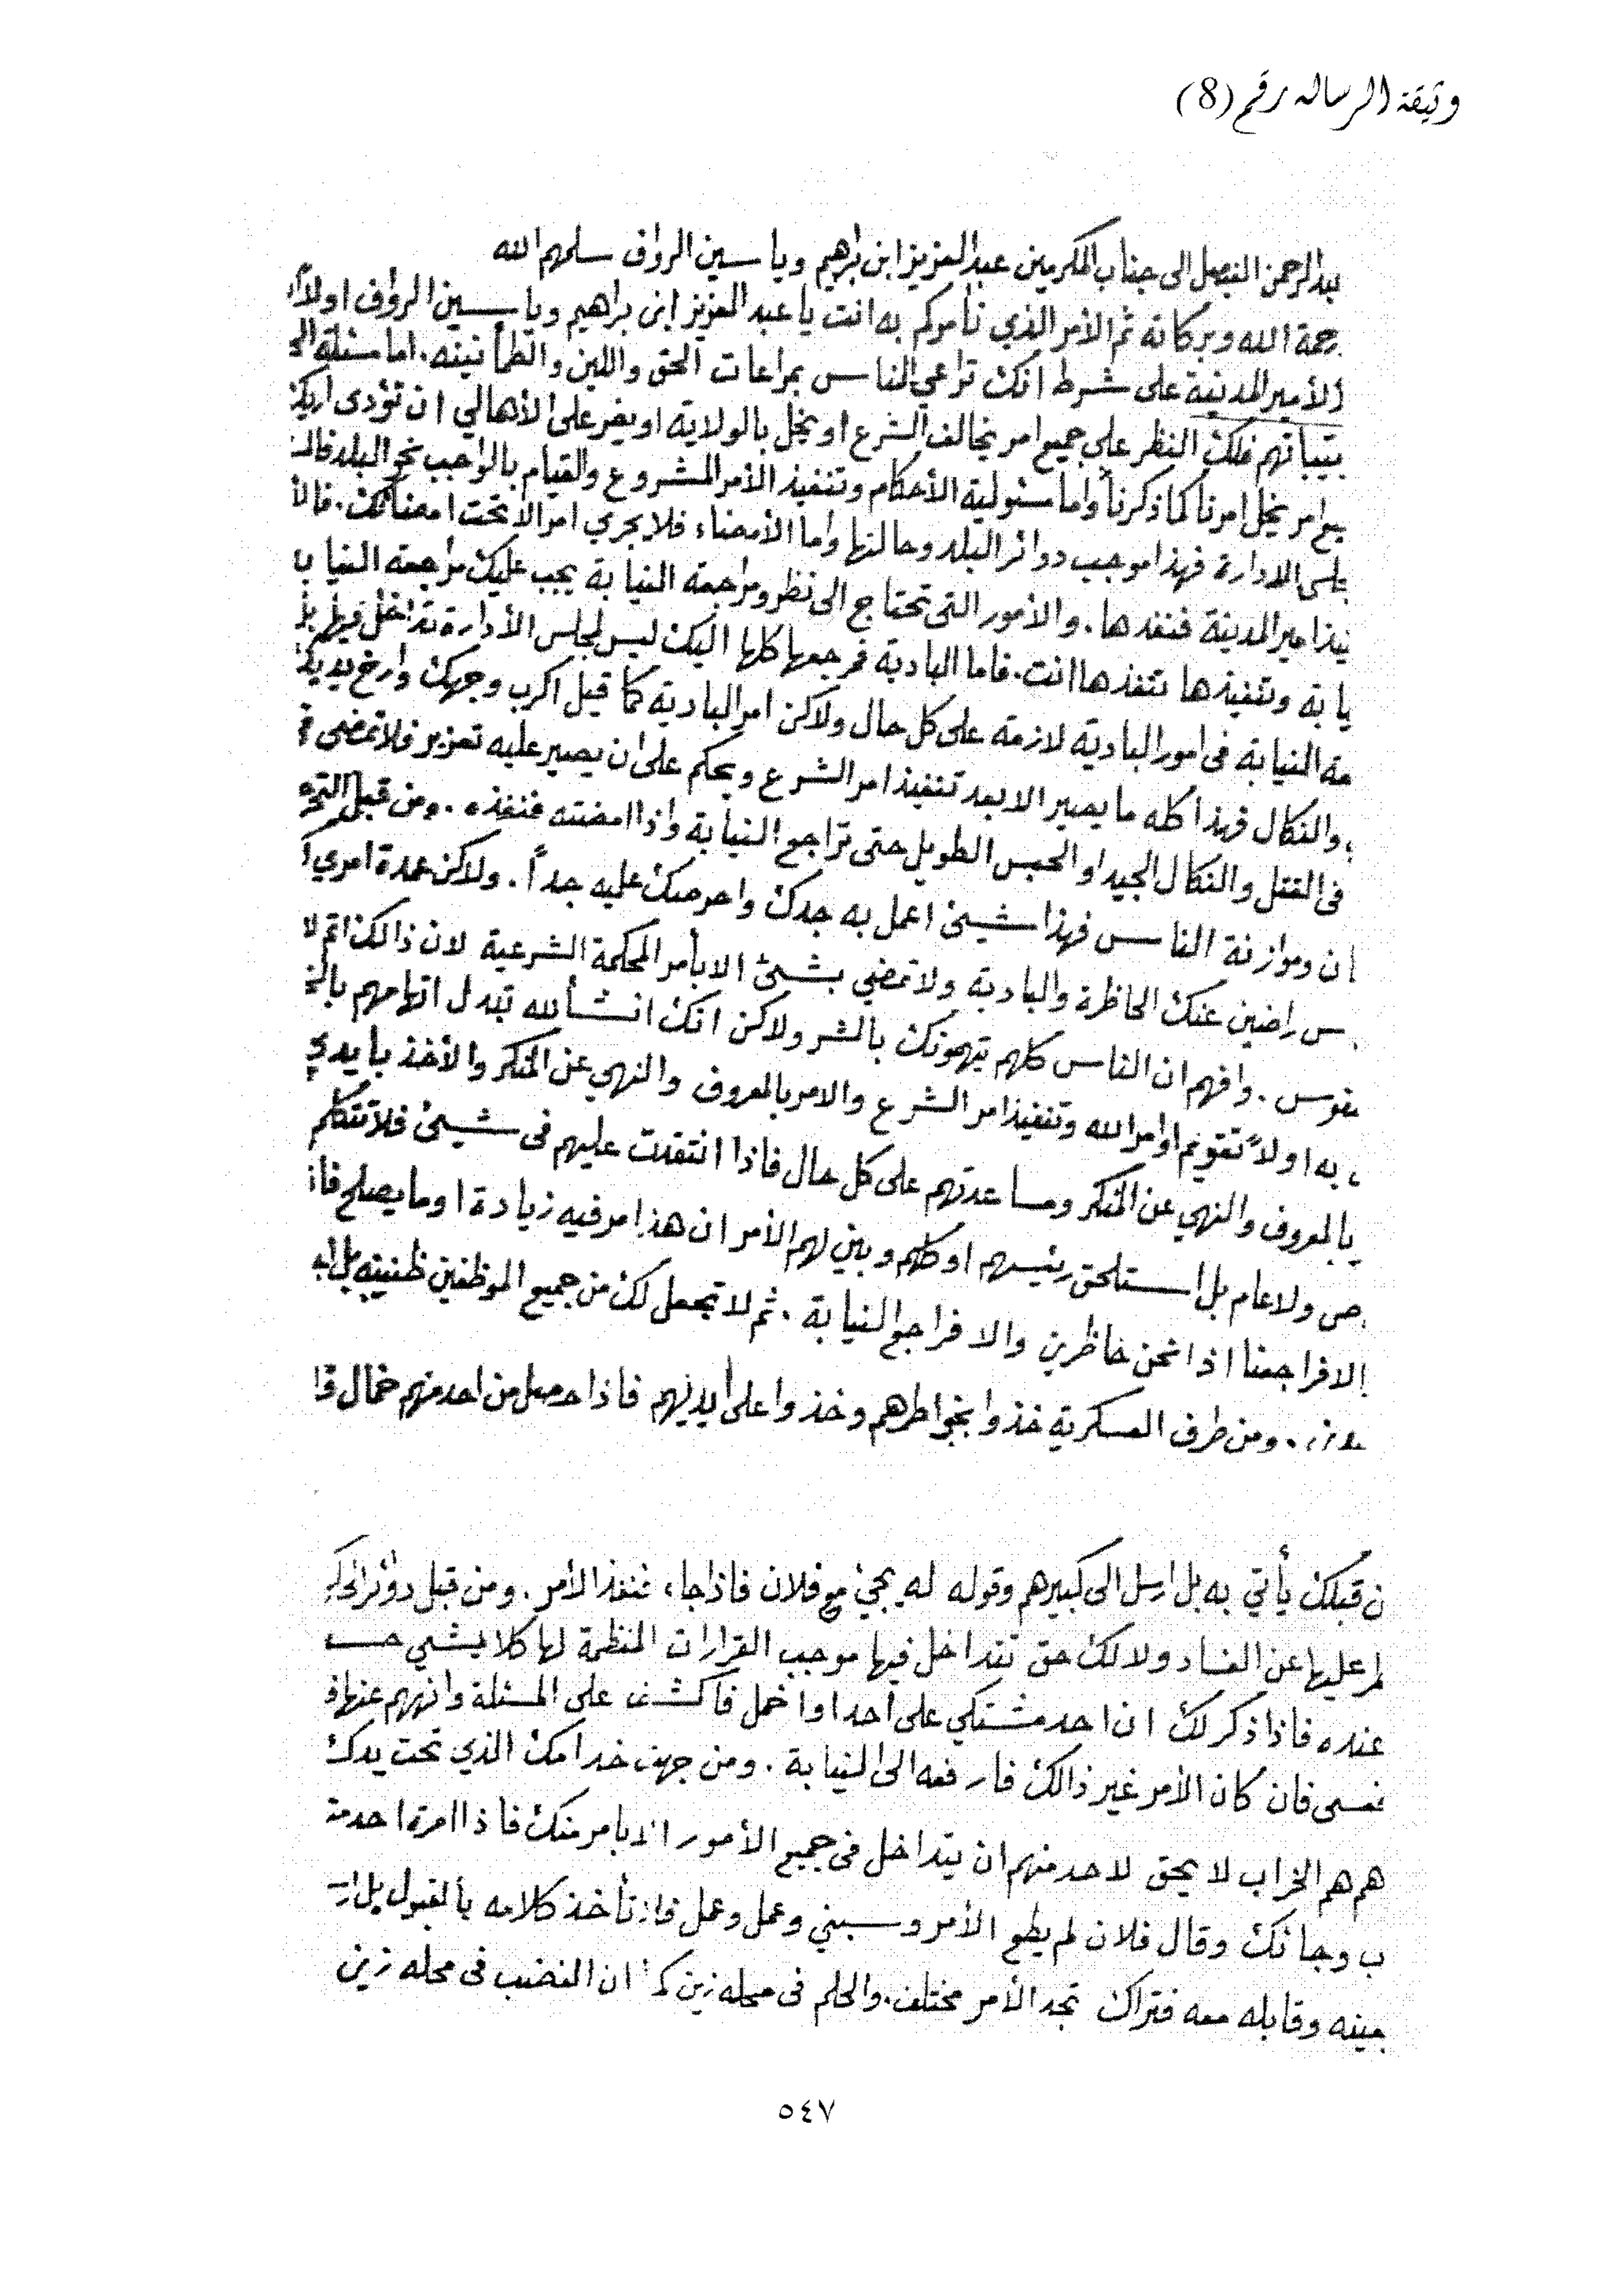 وثيقة الرساله رقم (8)
عبدالرحمن الفيصل الى جناب المكرمين عبدالعزيز ابن براهيم وياسين الرواف سلمهم الله
رحمة الله وبركاته ثم الأمر الذي نأموكم به انت يا عبد العزيز ابن براهيم وياسين الرواف اولاً
الأمير المدينة على شرط انك تراعي الناس بمراعات الحق واللين والطمأنينه. اما مسئلة
فلك النظر على جميع امر يخالف الشرع او يخل بالولاية او يغر على الأهالي ان تؤدى
امر يخل امرنا كما ذكرنا واما مسئولية الأحكام وتنفيذ الأمر المشروع والقيام بالواجب نحو البلد
الادارة فهذا موجب دوائر البلد وحالتها واما الأمضاء فلا يجري امر الا تحت امضائك.
امير المدينة فنفدها. والأمور التي تحتاج الى نظر ومراجعة النيابة يجب عليك مراجعة
يابة وتنفيذها تنفذها انت. فاما البادية فرجعها كلها اليك ليس لمجلس الأدارة تداخل فيهم
مة النيابة فى امور البادية لازمة على كل حال ولاكن امر البادية كما قيل اكرب وجهك وارخ يديك
والنكال فهذا كله ما يصير الا بعد تنفيذ امر الشرع ويحكم على ان يصير عليه تعزير فلا تمضى
فى القتل والنكال الجيد او الحبس الطويل حتى تراجع النيابة واذا امضته فنفذه. ومن قبل
ان وموازنة الناس فهذا شيئ اعمل به جدك واحرصك عليه جداً. ولاكن عمدة امري
س راضين عنك الحاظرة والبادية ولا تمضي بشئ الا بأمر المحكمة الشرعية لان ذالك اتم
. وافهم ان الناس كلهم يتهمونك بالشر ولاكن انك انشألله تبدل اتهامهم
به اولاً تقويم اوامر الله وتنفيذ امر الشرع والامر بالمعروف والنهي عن المنكر والأخذ بأيدي
يالمعروف والنهي عن المنكر ومساعدتهم على كل حال فاذا انتقدت عليهم فى شيئ فلا تتكلم
ص ولا عام بل استلحق رئيسهم او كلهم وبين لهم الأمر ان هذا امر فيه زيادة او ما يصلح
الا فراجعنا اذا نحن حاظرين والا فراجع النيابة. ثم لا تجعل لك من جميع الموظفين ظنينه
. ومن طرف العسكرية خذوا بخواطرهم وخذوا على أيديهم فاذا حصل من احد منهم خمال
ن قبلك يأتي به بل ارسل الى كبيرهم وقوله له يجي مع فلان فاذا جاء تنفذ الأمر. ومن قبل دوائر
عليها عن الفساد ولا لك حق تتداخل فيها موجب القرارات المنظمة لها كلا يمشي
عنده فاذا ذكر لك ان احد مشتكي على أحد او اخمل فاكشف على المسئلة وانههم عنها
فان كان الأمر غير ذالك فارفعه الى النيابة. ومن جهة خدامك الذي تحت يدك
هم هم الخراب لا يحق لاحد منهم ان يتداخل فى جميع الأمور الا بامر منك فاذا امرة احد
ب وجانك وقال فلان لم يطع الأمر وسبني وعمل وعمل فلا تأخذ كلامه بالقبول بل
وقابله معه فتراك تجد الأمر مختلف. والحلم فى محله زين كما ان الغضب فى محله زين
٥٤٧